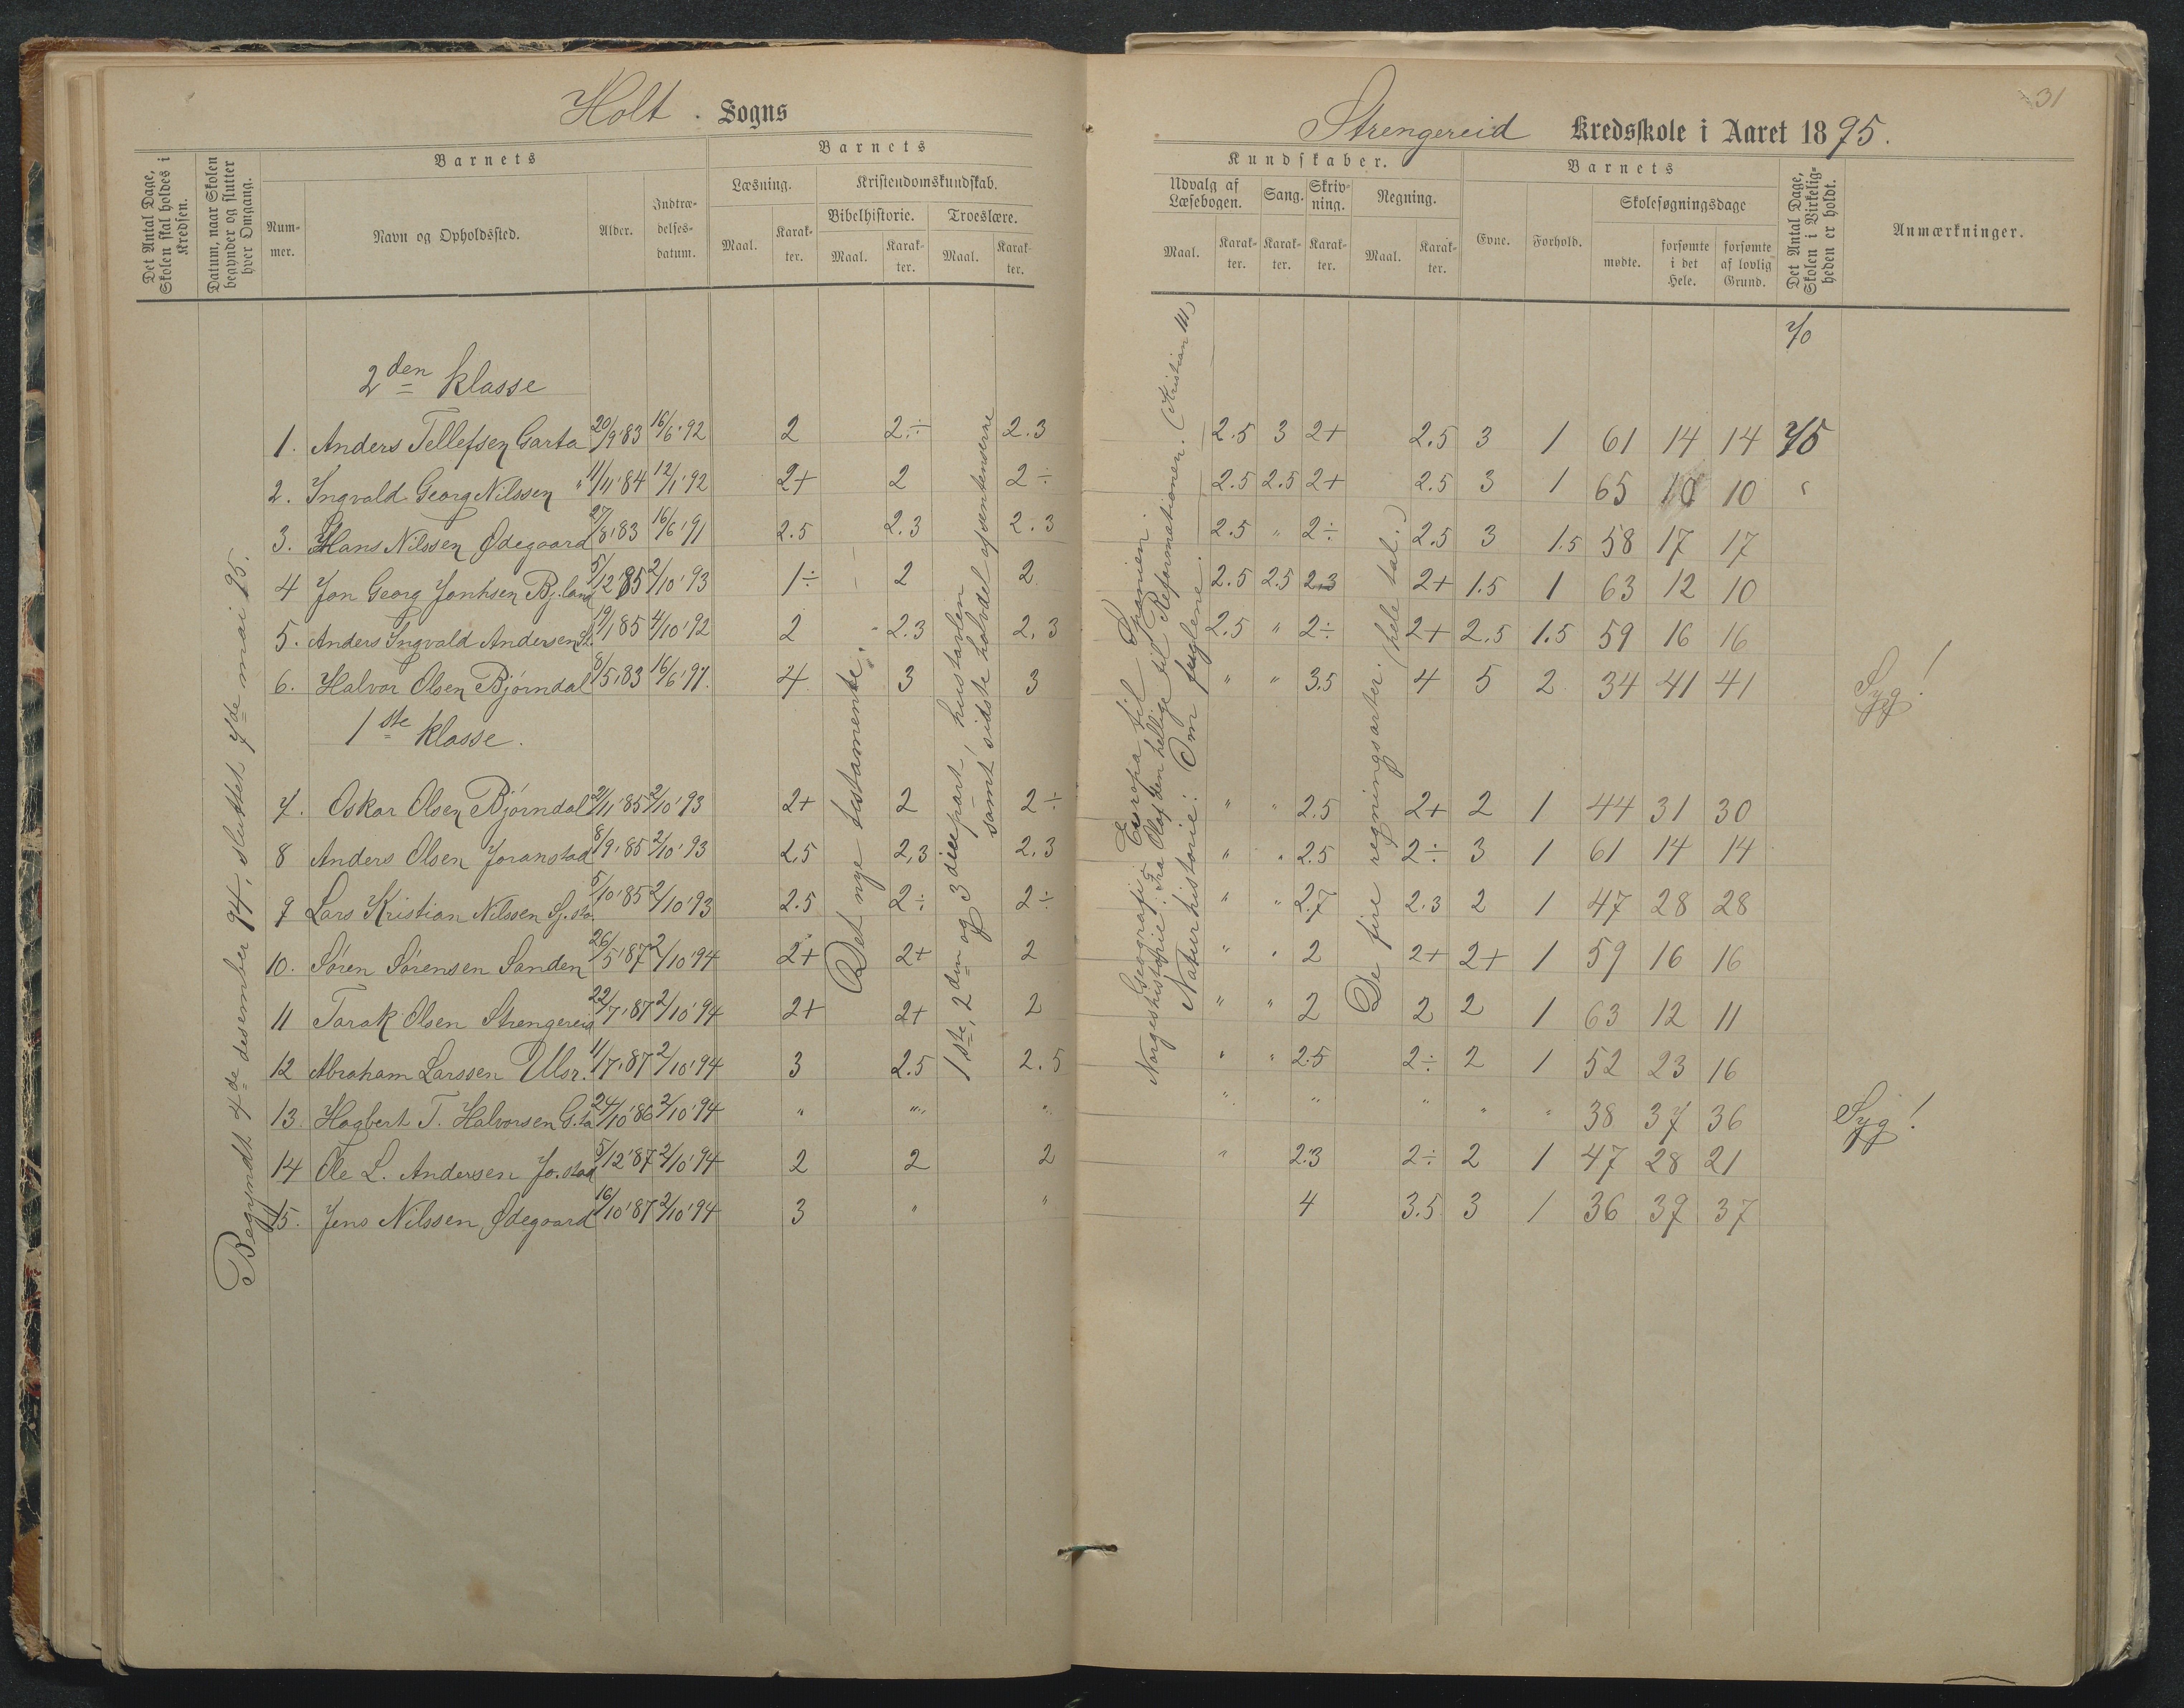 Holt. Sogns
Det Antal Dage, Skolen skal holdes i Kredsen.
Datum, naar Skolen begynder og slutter hver Omgang.
Barnets
Num-mer.
Navn og Opholdssted.
Alder.
Indtræ-delses-datum.
Barnets
Læsning.
Maal. Karak-ter.
Kristendomskundskab.
Bibelhistorie. Troeslære.
Maal. Karak-ter. Maal. Karak-ter.
Begyndt 4de desember 94, sluttet 7de mai 95.
2den klasse
1. Anders Tellefsen Garta 20/9 '83 16/6 '92 2 2÷ 2.3
2. Ingvald Georg Nilssen " 11/11 '84 12/1 '92 2+ 2 2÷
3. Hans Nilssen Ødegaard 27/8 '83 16/6 '91 2.5 2.3 2.3
4 Jon Georg Jonhsen Bj.land 5/12 '85 2/10 '93 1÷ 2 2
5. Anders Ingvald Andersen St. 19/1 85 4/10 '92 2 2.3 2.3
6. Halvor Olsen Bjørndal 8/5 '83 16/6 '91. 4 3 3
1ste klasse.
7. Oskar Olsen Bjørndal 2/11 '85 2/10 '93 2+ 2 2÷
8 Anders Olsen Joranstad 8/9 '85 2/10 '93 2.5 2.3 2.3
9 Lars Kristian Nilssen Sj.sta. 5/10 '85 2/10 '93 2.5 2÷ 2÷
10. Søren Sørensen Sanden 26/5 '87 2/10 '94 2+ 2+ 2
11 Tarak Olsen Strengereid 22/7 '87 2/10 '94 2+ 2+ 2
12 Abraham Larssen Ulsr. 11/7 '87 2/10 '94 3 2.5 2.5
13. Hagbert T. Halvorsen G.ta 24/10 '86 2/10 '94 " " "
14 Ole L. Andersen Jo.stad 5/12 '87 2/10 '94 2 2 2
15. Jens Nilssen, Ødegaard 16/10 '87 2/10 '94 3 " "
Det nye testamente.
1ste, 2den og 3die part, hustavlen
samt sidste halvdel af sentenserne
31
Strengereid Kredsskole i Aaret 1895.
Kundskaber.
Udvalg af Læsebogen. Sang. Skriv-ning. Regning.
Maal. Karak-ter. Karak-ter. Karak-ter. Maal. Karak-ter.
Barnets
Evne. Forhold.
Skolesøgningsdage
mødte. forsømte i det Hele. forsømte af lovlig Grund.
Det Antal Dage, Skolen i Virkelig-heden er holdt.
Anmærkninger.
70
2.5 3 2+ 2.5 3 1 61 14 14 75
2.5 2.5 2+ 2.5 3 1 65 10 10 "
2.5 " 2÷ 2.5 3 1.5 58 17 17
2.5 2.5 2.3 2+ 1.5 1 63 12 10
2.5 " 2÷ 2+ 2.5 1.5 59 16 16
" " 3.5 4 5 2 34 41 41 Syg!
" " 2.5 2+ 2 1 44 31 30
" " 2.5 2÷ 3 1 61 14 14
" " 2.7 2.3 2 1 47 28 28
" " 2 2+ 2+ 1 59 16 16
" " 2 2 2 1 63 12 11
" " 2.5 2÷ 2 1 52 23 16
" " " " " 38 37 36 Syg!
" 2.3 2÷ 2 1 47 28 21
4 3.5 3 1 36 39 37
Geografi: Europa til Spanien.
Norgeshistorie: Fra Olaf den hellige til Reformationen. (Kristian III)
Naturhistorie: Om fuglene.
De fire regningsarter. (hele tal.)